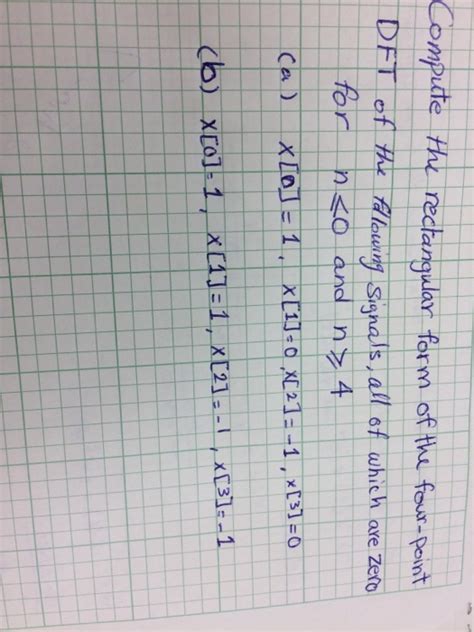 Compute the rectangular form of the four-point
DFT of the following signals, all of which are zero
for n ≤ 0 and n ≥ 4
(a) x[0] = 1, x[1] = 0, x[2] = -1, x[3] = 0
(b) x[0] = 1, x[1] = 1, x[2] = -1, x[3] = -1